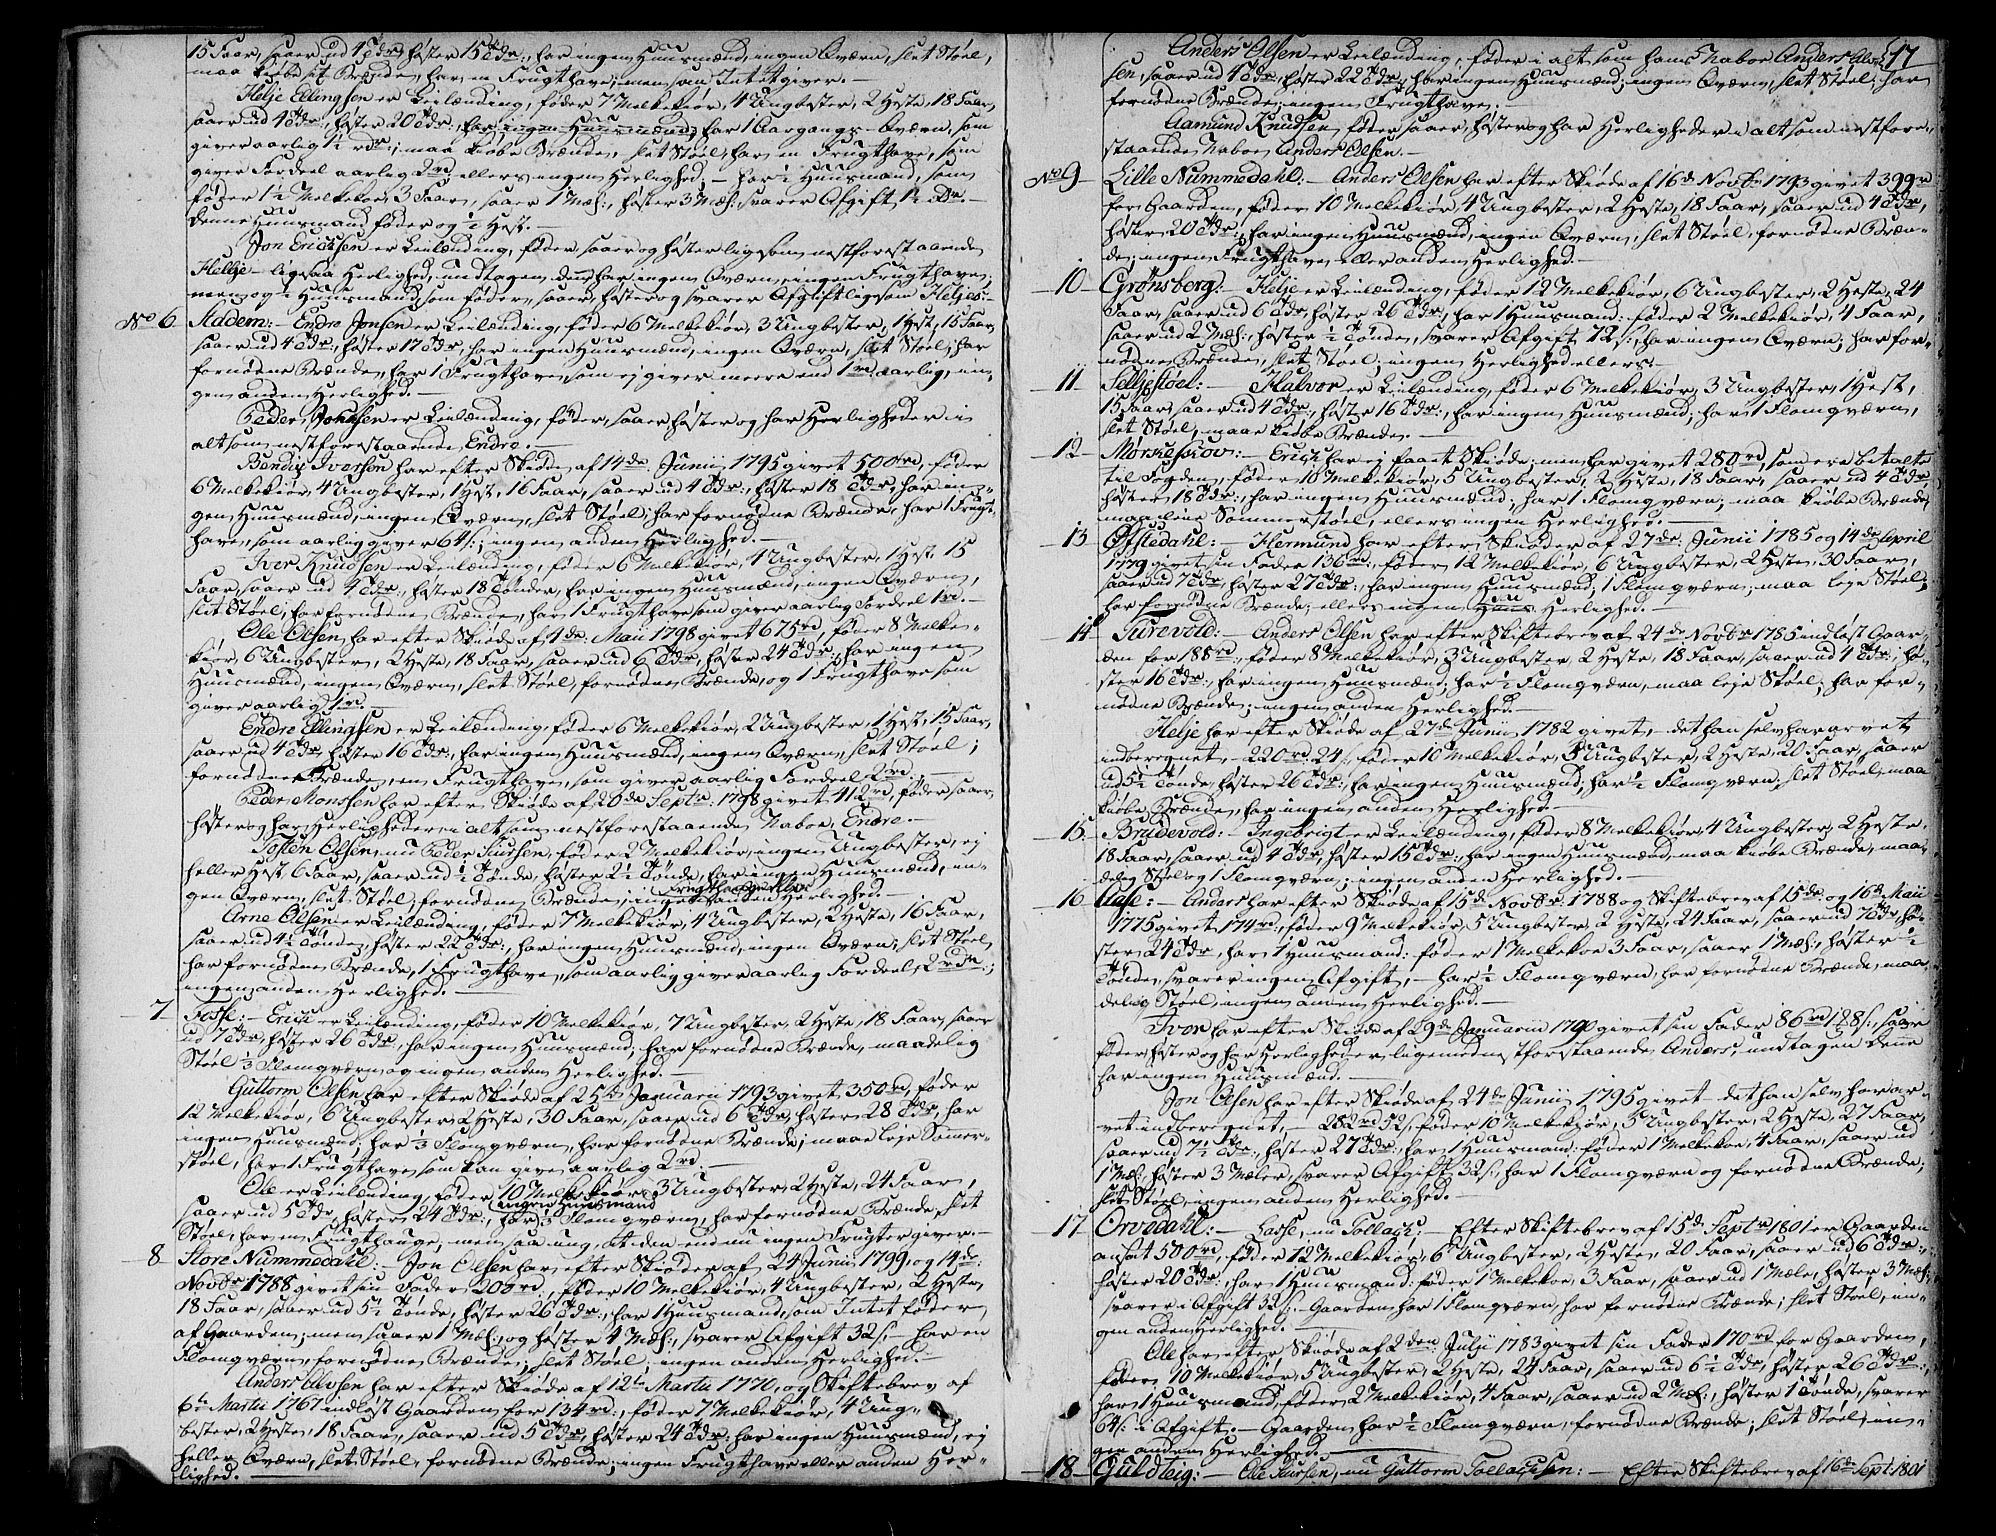 15 Faar, saaer ud 4 Tdr, høster 15 Tdr:, har ingen Huusmænd, ingen Qværn, slet Støel,
maa kiøbe sit Brænde, har en Frugthave; men som Intet giver. —
Helje Ellingsen er Leilænding, føder 7 Melkekiør, 4 Ungbester, 2 Heste, 18 Faar,
saaer ud 4 Tdr:, høster 20 Tdr:, har ingen Huusmænd; har 1 Aargangs-Qværn, som
giver aarlig ½ rdr:; maa kiøbe Brænde, slet Støel; har en Frugthave, som
giver Fordeel aarlig 2 rd; ellers ingen Herlighed. — har ½ Huusmand, som
føder 1½ Melkekoe, 3 Faar, saaer 1 Mæl:, høster 3 Mæl:, svarer Afgift 1½ Dr. —
denne Huusmand føder og ½ Hest. —
Jon Erichsen er Leilænding, føder, saaer og høster ligesom nestforestaaende
Hellje — ligesaa Herlighed, undtagen denne har ingen Qværn, ingen Frugthave;
men og ½ Huusmand, som føder, saaer, høster og svarer Afgift ligsom Heljes. —
No 6 Haddem: — Endre Jonsen er Leilænding, føder 6 Melkekiør, 3 Ungbester, 1 Hest, 15 Faar,
saaer ud 4 Tdr:, høster 17 Tdr, har ingen Huusmænd, ingen Qværn, slet Støel, har
fornødne Brænde, har 1 Frugthave, som ej giver meere end 1 rd. aarlig, in-
gen anden Herlighed. —
Peder Johnsen er Leilænding, føder, saaer, høster og har Herligheder i
alt som nestforestaaende Endre. —
Bendix Iversen har efter Skiøde af 14de Junii 1795 givet 500 rd, føder
6 Melkekiør, 4 Ungbester, 1 Hest, 16 Faar, saaer ud 4 Tdr:, høster 18 Tdr, har in-
gen Huusmænd, ingen Qværn, slet Støel; har fornødne Brænde, har 1 Frugt-
have, som aarlig giver 64 s:; ingen anden Herlighed. —
Iver Knudsen er Leilænding, føder 6 Melkekiør, 4 Ungbester, 1 Hest, 15
Faar, saaer ud 4 Tdr:, høster 18 Tønder, har ingen Huusmænd, ingen Qværn,
slet Støel; har fornødne Brænde, har 1 Frugthave som giver aarlig Fordeel 1 rd. —
Ole Olsen har efter Skiøde af 4de Maii 1798 givet 675 rd, føder 8 Melke-
kiør, 6 Ungbester, 2 Heste, 18 Faar, saaer ud 6 Tdr, høster 24 Tdr:, har ingen
Huusmænd, ingen Qværn, slet Støel, fornødne Brænde, og 1 Frugthave som
giver aarlig 1 rd. —
Endre Ellingsen er Leilænding, føder 6 Melkekiør, 2 Ungbester, 1 Hest, 15 Faar,
saaer ud 4 Tdr, høster 16 Tdr:, har ingen Huusmænd, ingen Qværn, slet Støel;
fornødne Brænde, en Frugthave, som giver aarlig Fordeel 2 rd. —
Peder Monssen har efter Skiøde af 20de Septr: 1798 givet 412 rd, føder, saaer,
høster og har Herligheder i alt som nestforestaaende Naboe, Endre. —
Tosten Olsen, nu Peder Siursen, føder 2 Melkekiør, ingen Ungbester, ej
heller Hest, 6 Faar, saaer ud ½ Tønde, høster 2½ Tønde, har ingen Huusmænd, in-
gen Qværn, slet Støel, fornødne Brænde; ingen anden Herlighed.
Arne Olsen er Leilænding, føder 7 Melkekiør, 4 Ungbester, 2 Heste, 16 Faar,
saaer ud 4½ Tønde, høster 22 Tdr:, har ingen Huusmænd, ingen Qværn, slet Støel,
har fornødne Brænde, 1 Frugthave, som aarlig giver aarlig Fordeel 2 rdr:;
ingen anden Herlighed. —
7 Fosse: — Erich er Leilænding, føder 10 Melkekiør, 7 Ungbester, 2 Heste, 18 Faar, saaer
ud 7 Tdr, høster 26 Tdr:, har ingen Huusmænd; har fornødne Brænde, maadelig
Støel, ⅓ Flomqværn og ingen anden Herlighed. —
Guttorm Olsen har efter Skiøde af 25de Januarii 1793 givet 350 rd, føder
12 Melkekiør, 6 Ungbester, 2 Heste, 30 Faar, saaer ud 6 Tdr, høster 28 Tdr, har
ingen Huusmænd, har ⅓ Flomqværn, har fornødne Brænde; maae leje Sommer-
støel, har 1 Frugthave som kan give aarlag 2 rd. —
Ole er Leilænding, føder 10 Melkekiør, 3 Ungbester, 2 Heste, 24 Faar,
ingen Huusmand
saaer ud 5 Tdr, høster 24 Tdr:, har ⅓ Flomqværn, har fornødne Brænde, slet
Støel, har en Frugthauge, men saa ung, at den endnu ingen Frugter giver. —
8 Store Nummedahl: — Jon Olsen har efter Skiøder af 24 Junii 1799, og 14de
Novbr 1788 givet sin Fader 200 rd, føder 10 Melkekiør, 4 Ungbester, 2 Heste,
18 Faar, saaer ud 5½ Tønde, høster 26 Tdr:, har 1 Huusmand, som Intet føder
af Gaarden; men saaer 1 Mæl:, og høster 4 Mæl:, svarer Afgift 32 s. — har en
Flomqværn, fornødne Brænde; slet Støel; ingen anden Herlighed. —
Anders Olvsen har efter Skiøde af 12te Martii 1770, og Skiftebrev af
6te Martii 1767 indløst Gaarden for 134 rd:, føder 7 Melkekiør, 4 Ung-
bester, 2 Heste, 18 Faar, saaer ud 5 Tdr, høster 24 Tdr: har ingen Huusmænd, ej
heller Qværn, slet Støel, fornødne Brænde; ingen Frugthave eller anden Her-
lighed. —
17
Anders Olsen er Leilænding, føder i alt som hans Nabo Anders Olv-
sen, saaer ud 4 Tdr, høster 22 Tdr:, har ingen Huusmænd; ingen Qværn, slet Støel, har
fornødne Brænde; ingen Frugthave. —
Aamund Knudsen føder, saaer, høster og har Herligheder i alt som nestfore-
staaende Naboe Anders Olsen. —
No 9 Lille Nummedahl: — Anders Olsen har efter Skiøde af 16de Novbr 1793 givet 399 rd
for Gaarden, føder 10 Melkekiør, 4 Ungbester, 2 Heste, 18 Faar, saaer ud 4 Tdr,
høster 20 Tdr:, har ingen Huusmænd, ingen Qværn, slet Støel, fornødne Bræn-
de; ingen Frugthave eller anden Herlighed. —
10 Grønsberg: — Helje er Leilænding, føder 12 Melkekiør, 6 Ungbester, 2 Heste, 24
Faar, saaer ud 6 Tdr, høster 26 Tdr:, har 1 Huusmand: føder 2 Melkekiør, 4 Faar,
saaer ud 2 Mæl:, høster 1½ Tønde, svarer Afgift 72 s:, har ingen Qværn; har for-
nødne Brænde, slet Støel; ingen Herlighed ellers. —
11 Selljestoel: — Halvor er Leilænding, føder 6 Melkekiør, 3 Ungbester, 1 Hest,
15 Faar, saaer ud 4 Tdr, høster 16 Tdr:, har ingen Huusmænd; har 1 Flomqværn,
slet Støel, maae kiøbe Brænde. —
12 Mørkeskov: — Erich har ei faaet Skiøde; men har givet 280 rd, som ere betalte
til Fogden, føder 10 Melkekiør, 5 Ungbester, 2 Heste, 18 Faar, saaer ud 4 Tdr,
høster 18 Tdr:, har ingen Huusmænd; har 1 Flomqværn; maa kiøbe Brænde,
maa leie Sommerstøel, ellers ingen Herlighed. —
13 Offstedahl: — Hermund har efter Skiøder af 27de Junii 1785 og 14de April
1779 givet sin Fader 136 rd:, føder 12 Melkekiør, 6 Ungbester, 2 Heste, 30 Faar,
saaer ud 7 Tdr, høster 27 Tdr: har ingen Huusmænd; 1 Flomqværn, maa leje Støel,
har fornødne Brænde; ellers ingen Huus Herlighed. —
14 Turevold: — Anders Olsen har efter Skiftebrev af 24de Novbr 1785 indløst Gaar-
den for 188 rd:, føder 8 Melkekiør, 3 Ungbester, 2 Heste, 18 Faar, saaer ud 4 Tdr:, hø-
ster 16 Tdr:, har ingen Huusmænd; har ½ Flomqværn, maa leje Støel, har for-
nødne Brænde; ingen anden Herlighed. —
Helje har efter Skiøde af 27de Junii 1782 givet, — det han selv har arvet
indberegnet, — 220 rd. 24 s: føder 10 Melkekiør, 5 Ungbester, 2 Heste, 20 Faar, saaer
ud 5½ Tønde, høster 26 Tdr:, har ingen Huusmænd, har ½ Flomqværn, slet Støel, maa
kiøbe Brænde, har ingen anden Herlighed. —
15 Brudevold: — Ingebrigt er Leilænding, føder 8 Melkekiør, 4 Ungbester, 2 Heste,
18 Faar, saaer ud 4 Tdr, høster 15 Tdr:, har ingen Huusmænd, maa kiøbe Brænde, maa-
delig Støel og 1 Flomqværn; ingen anden Herlighed. —
16 Aase: — Anders har efter Skiøde af 15de Novbr. 1788 og Skiftebrev af 15de og 16de Maii
1775 givet 174 rd:, føder 9 Melkekiør, 5 Ungbester, 2 Heste, 24 Faar, saaer ud 7 Tdr, hø-
ster 24 Tdr, har 1 Huusmand: føder 1 Melkekoe 3 Faar, saaer 1 Mæl:, høster ½
Tønde, svarer ingen Afgift, — har ½ Flomqværn, har fornødne Brænde, maa-
delig Støel, ingen anden Herlighed. —
Iver har efter Skiøde af 29de Januarii 1790 givet sin Fader 86 rd 128 s:, saaer,
føder, høster og har Herligheder, lige med nestforstaaende Anders, undtagen denne
har ingen Huusmænd. —
Jon Olsen har efter Skiøde af 24de Junii 1795 givet — det han selv har ar-
vet indberegnet, — 282 rd 52 s, føder 10 Melkekiør, 5 Ungbester, 2 Heste, 27 Faar,
saaer ud 7½ Tdr:, høster 27 Tdr:, har 1 Huusmand: føder 1 Melkekoe, 4 Faar, saaer ud
1 Mæl:, høster 3 Mæler, svarer Afgift 32 s: har 1 Flomqværn og fornødne Brænde;
slet Støel, ingen anden Herlighed. —
17 Orvedahl: — Lasse, nu Tollach: — Efter Skiftebrev af 15de Septr 1801 er Gaarden
ansat 500 rd, føder 12 Melkekiør, 6 Ungbester, 2 Heste, 20 Faar, saaer ud 6 Tdr:,
høster 20 Tdr:, har 1 Huusmand: føder 1 Melkekoe, 3 Faar, saaer ud 1 Mæle, høster 3 Mæl:
svarer i Afgift 32 s. — Gaarden har 1 Flomqværn, har fornødne Brænde; slet Støel, in-
gen anden Herlighed. —
Ole har efter Skiøde af 2den Julii 1783 givet sin Fader 170 rd for Gaarden,
føder 10 Melkekiør, 5 Ungbester, 2 Heste, 24 Faar, saaer ud 6½ Tdr, høster 26 Tdr:,
har 1 Huusmand, føder 2 Melkekiør, 4 Faar, saaer ud 2 Mæl:, høster 1 Tønde, svarer
64 s: i Afgift. — Gaarden har ½ Flomqværn, fornødne Brænde; slet Støel, in-
gen anden Herlighed. —
18 Guldteig: — Ole Siursen, nu Guttorm Tollachsen: — Efter Skiftebrev af 16de Sept: 1801